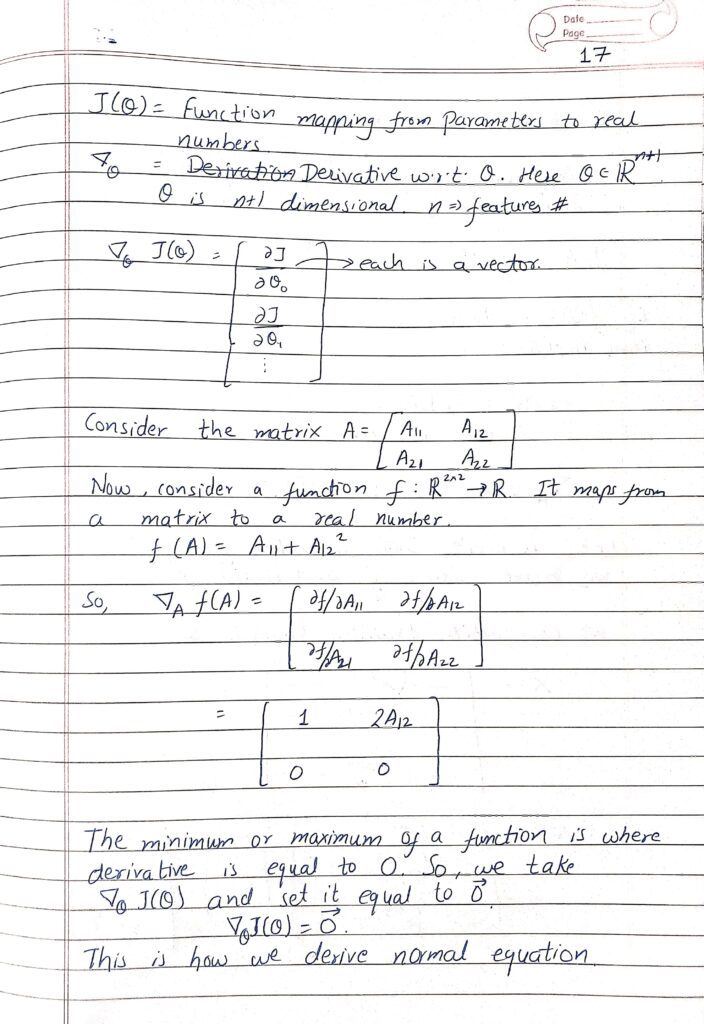 Date
Page
17
J(θ) = Function mapping from Parameters to real
numbers.
∇θ = Derivation Derivative w.r.t. θ. Here θ ∈ ℝⁿ⁺¹
θ is n+1 dimensional. n ⇒ features #
∇θ J(θ) = [ ∂J/∂θ₀ → each is a vector.
∂J/∂θ₁
⋮ ]
Consider the matrix A = [ A₁₁ A₁₂
A₂₁ A₂₂ ]
Now, consider a function f : ℝ²ˣ² → ℝ. It maps from
a matrix to a real number.
f (A) = A₁₁ + A₁₂²
So, ∇A f(A) = [ ∂f/∂A₁₁ ∂f/∂A₁₂
∂f/∂A₂₁ ∂f/∂A₂₂ ]
= [ 1 2A₁₂
0 0 ]
The minimum or maximum of a function is where
derivative is equal to 0. So, we take
∇θ J(θ) and set it equal to 0⃗
∇θJ(θ) = 0⃗.
This is how we derive normal equation.